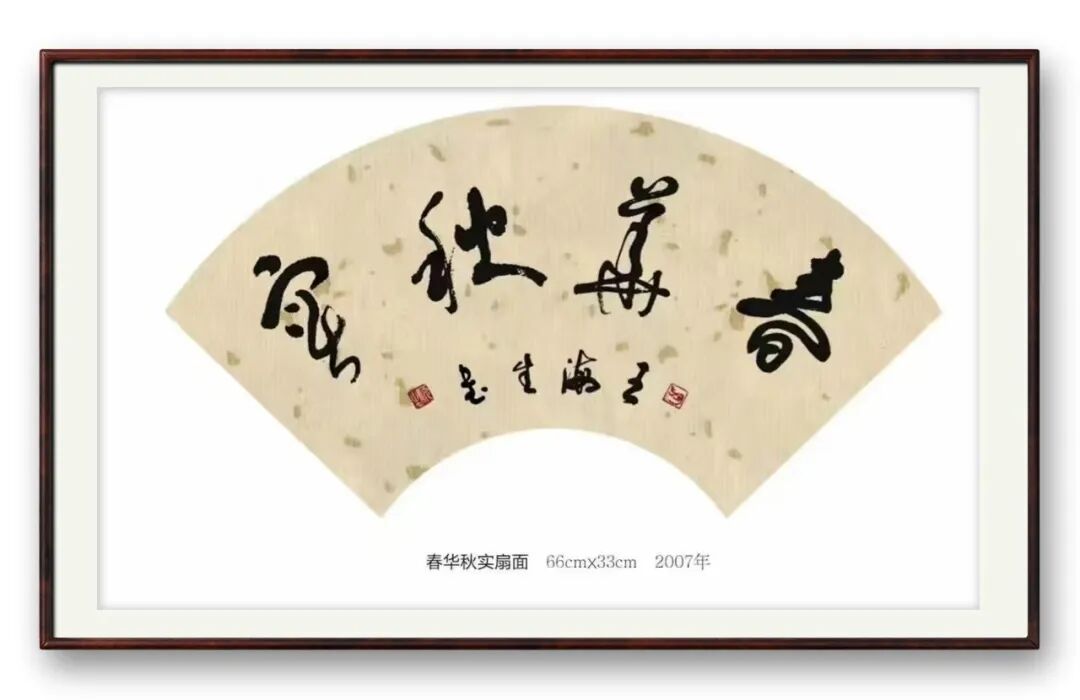 春華秋實
王海生书
春华秋实扇面 66cmx33cm 2007年